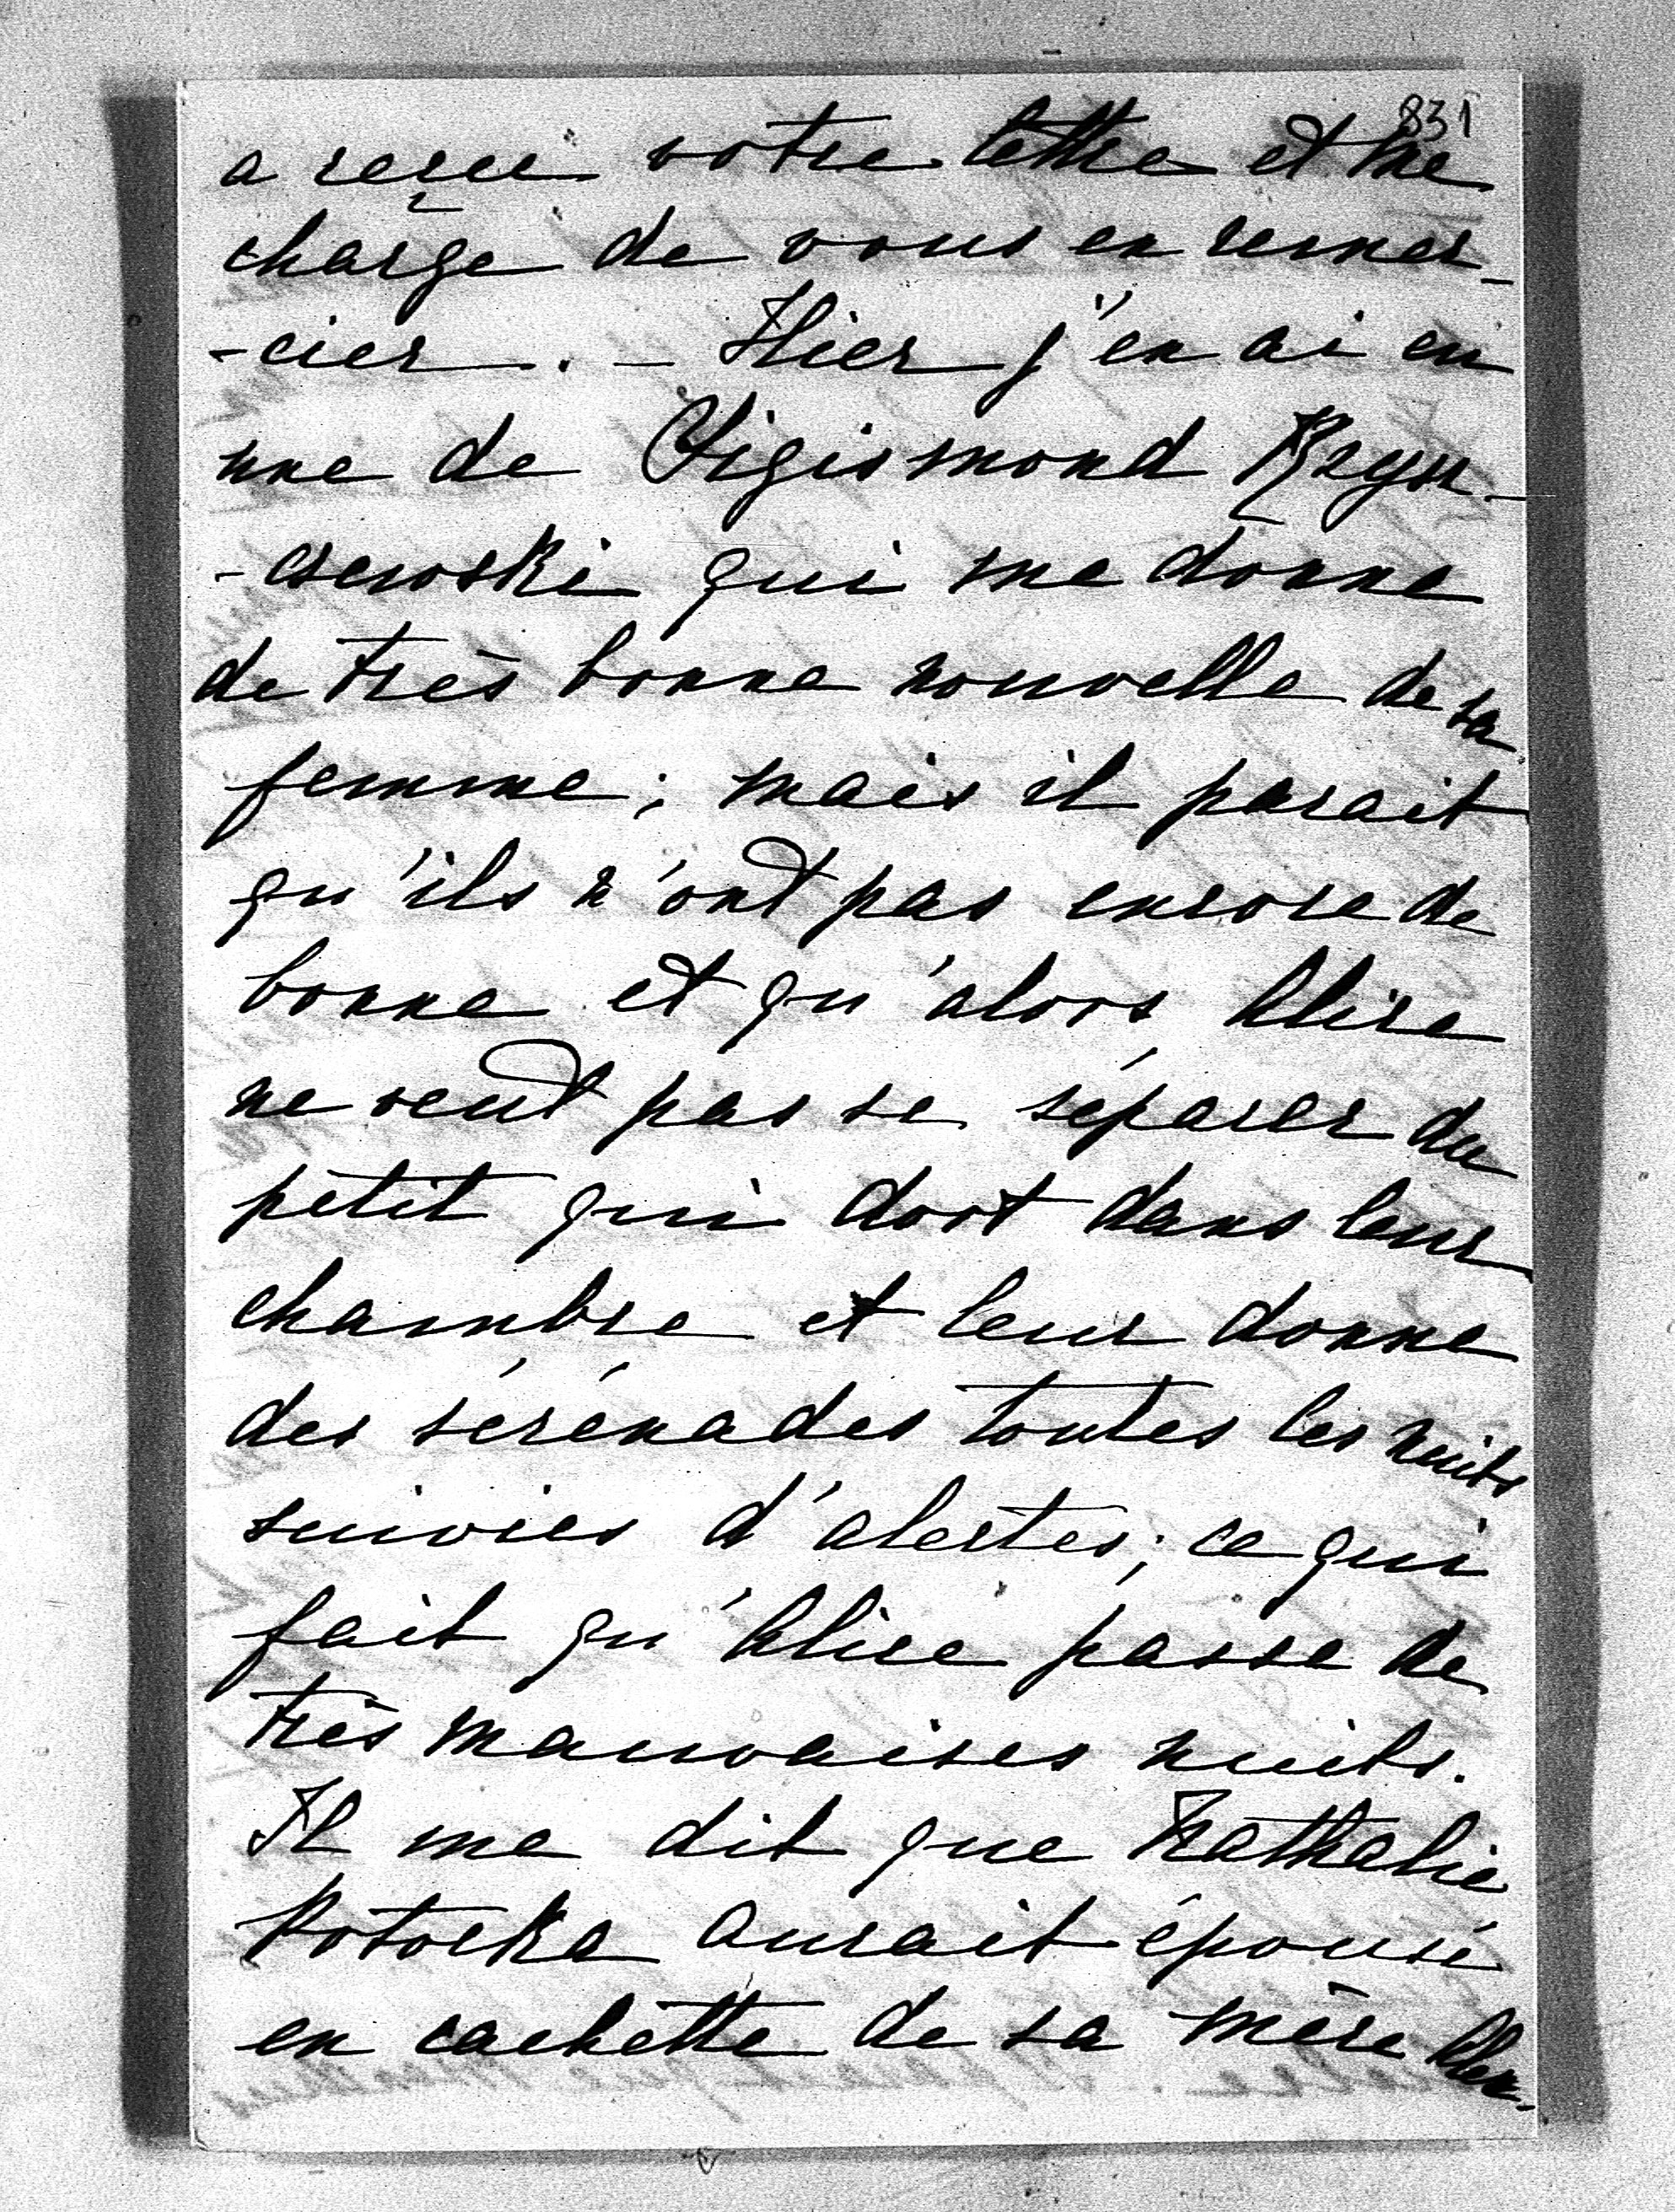 831
a reçu votre lettre et me
charge de vous en remer-
-cier. – Hier j'en ai eu
une de Sigismond Rzysz-
-czewski qui me donne
de très bonne nouvelle de sa
femme; mais il parait
qu'ils n'ont pas encore de
bonne et qu'alors Alice
ne veut pas se séparer du
petit qui dort dans leur
chambre et leur donne
des sérénades toutes les nuits
suivies d'alertes; ce qui
fait qu'Alice passe de
très mauvaises nuits.
Il me dit que Nathalie
Potocka aurait épousé
en cachette de sa mère Alex-